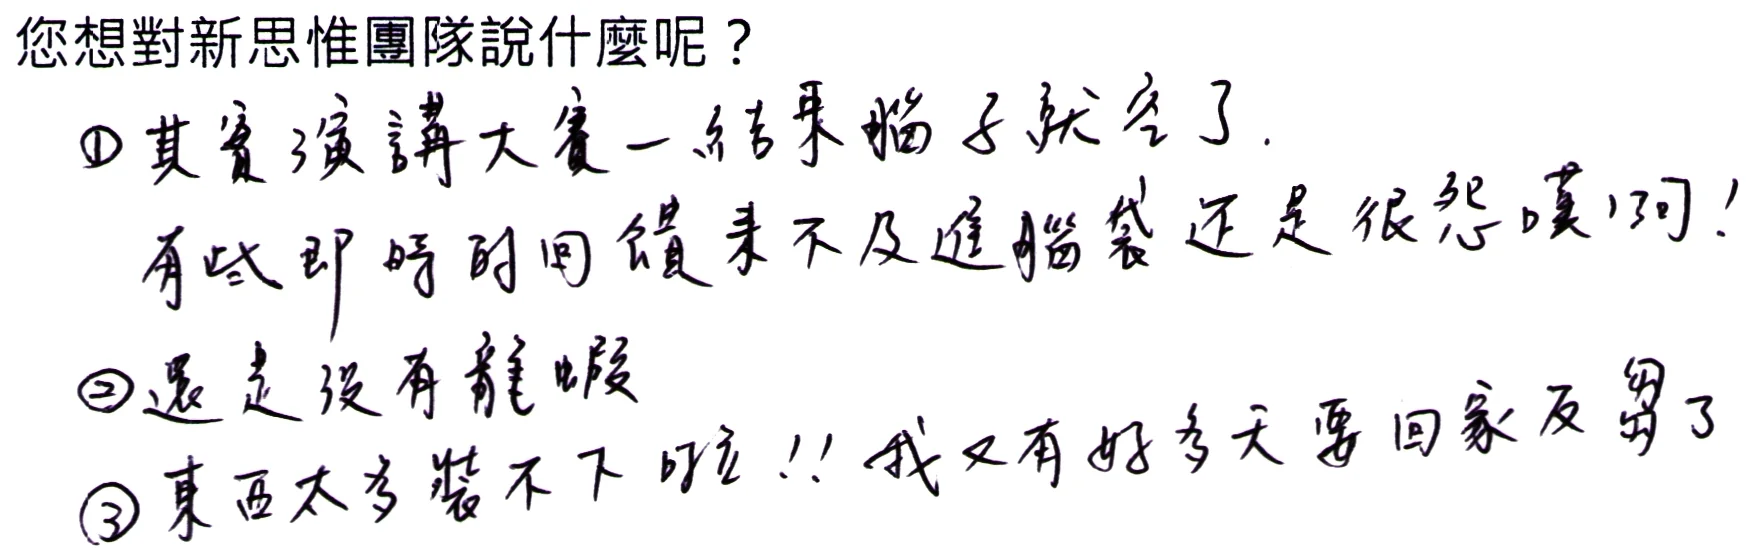 您想對新思惟團隊說什麼呢？
① 其實演講大賽一結束腦子就空了.
有些即時的回饋來不及進腦袋还是很怨嘆啊!
② 還是沒有龍蝦
③ 東西太多裝不下啦!! 我又有好多天要回家反芻了